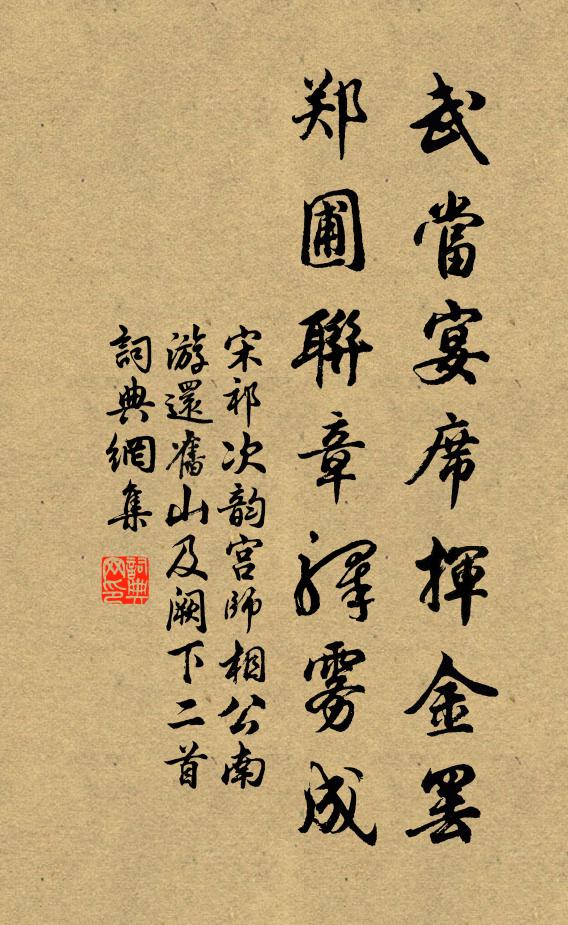 武當宴席揮金罢
郑圃聯章雾成
宋祁次韵宫師相公南
游還舊山及阙下二首
詞典網集
詞典
网印